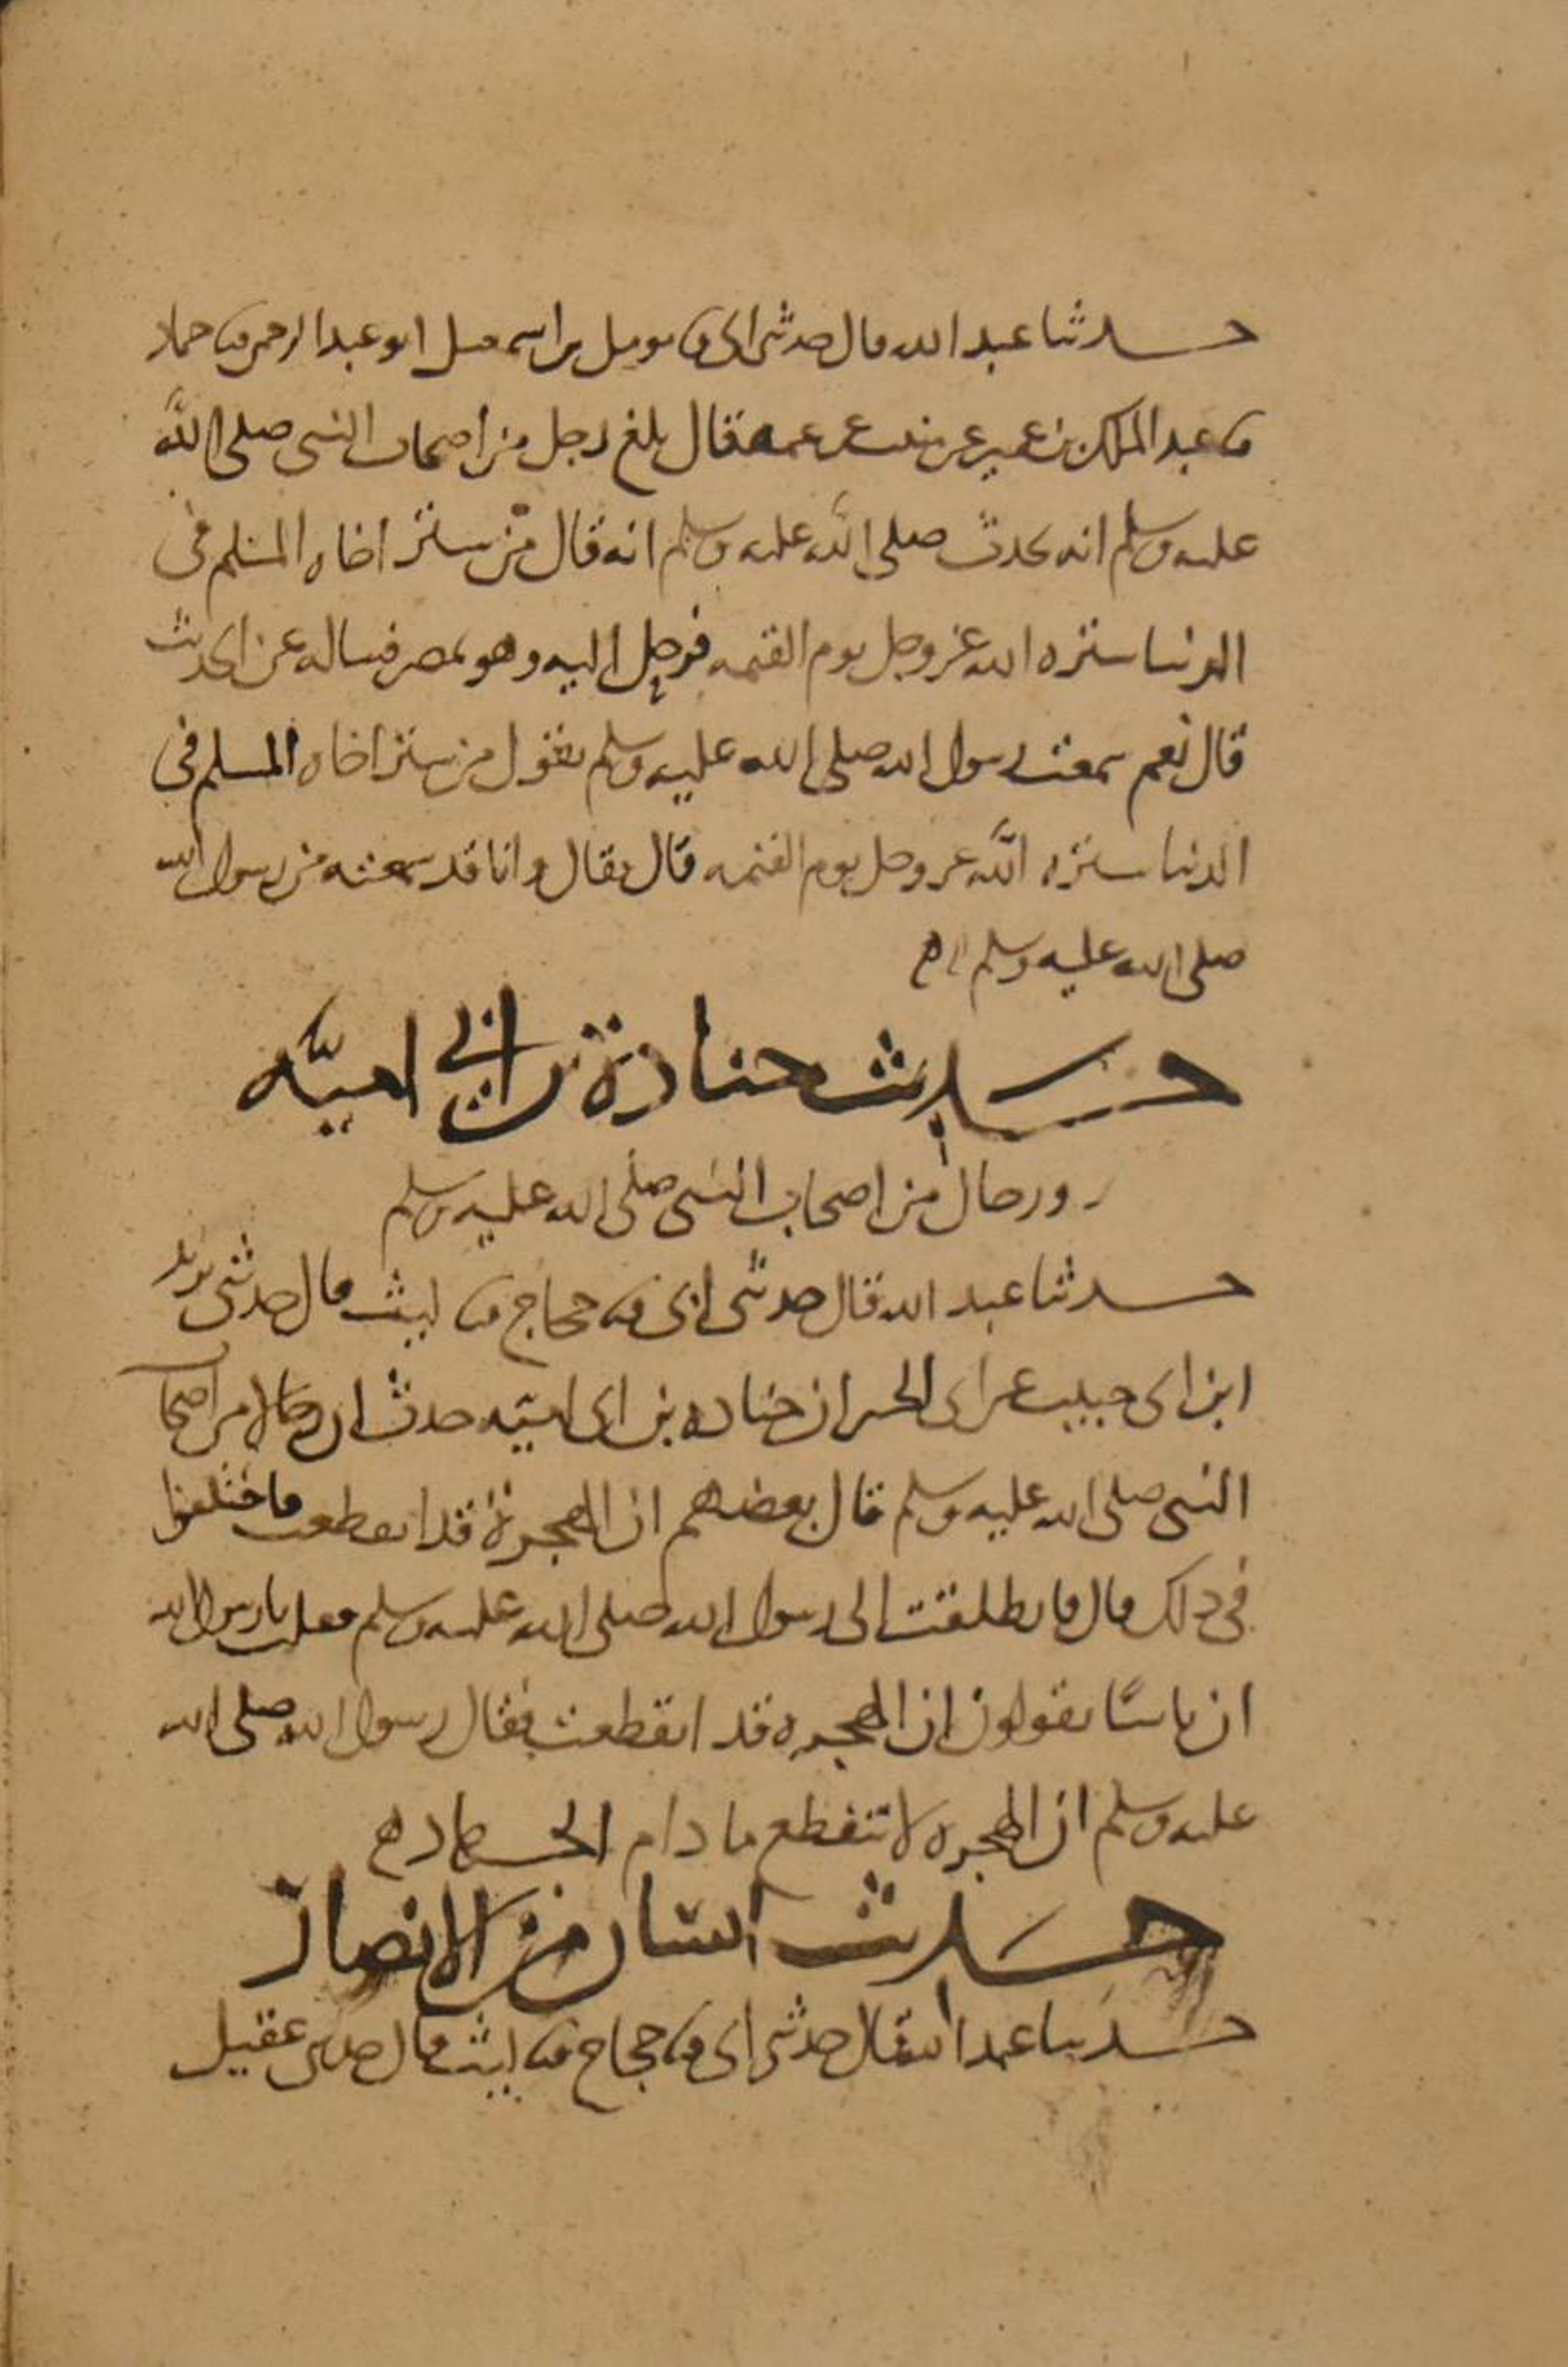 حدثنا عبد الله قال حدثني ابي ثنا مومل بن اسمعيل ابو عبد الرحمن ثنا حماد
ثنا عبد الملك بن عمير عن منيب عن عمه قال بلغ رجل من اصحاب النبي صلى الله
عليه وسلم انه يحدث صلى الله عليه وسلم انه قال من ستر اخاه المسلم في
الدنيا ستره الله عز وجل يوم القيمه فرحل اليه وهو بمصر فساله عن الحديث
قال نعم سمعت رسول الله صلى الله عليه وسلم يقول من ستر اخاه المسلم في
الدنيا ستره الله عز وجل يوم القيمه قال فقال وانا قد سمعته من رسول الله
صلى الله عليه وسلم
حديث جنادة بن ابي اميه
ورجال من اصحاب النبي صلى الله عليه وسلم
حدثنا عبد الله قال حدثني ابي ثنا حجاج ثنا ليث قال حدثني يزيد
ابن ابي حبيب عن ابي الخير ان جناده بن ابي اميه حدث ان رجالا من اصحاب
النبي صلى الله عليه وسلم قال بعضهم ان الهجرة قد انقطعت فاختلفوا
في ذلك قال فانطلقت الى رسول الله صلى الله عليه وسلم فقلت يا رسول الله
ان ناسا يقولون ان الهجره قد انقطعت فقال رسول الله صلى الله
عليه وسلم ان الهجره لا تنقطع ما دام الجهاد
حديث انسان من الانصار
حدثنا عبد الله قال حدثني ابي ثنا حجاج ثنا ليث قال حدثني عقيل